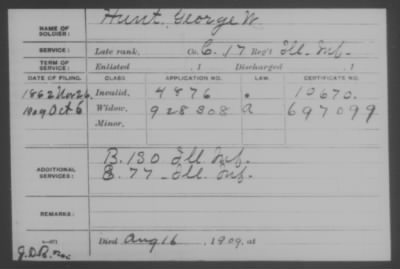 Hunt, George W.
NAME OF SOLDIER:
SERVICE: Late rank, Co. C. 17 Reg't Ill. Inf.
TERM OF SERVICE: Enlisted , 1 Discharged , 1
DATE OF FILING. CLASS APPLICATION NO. LAW. CERTIFICATE NO.
1862 Nov 26 Invalid, 4876 10670.
1909 Oct 6 Widow, 928808 a 697099
Minor,
B. 130 Ill. Inf.
ADDITIONAL SERVICES: 77 Ill. Inf.
REMARKS:
Died Aug 16, 1909, at